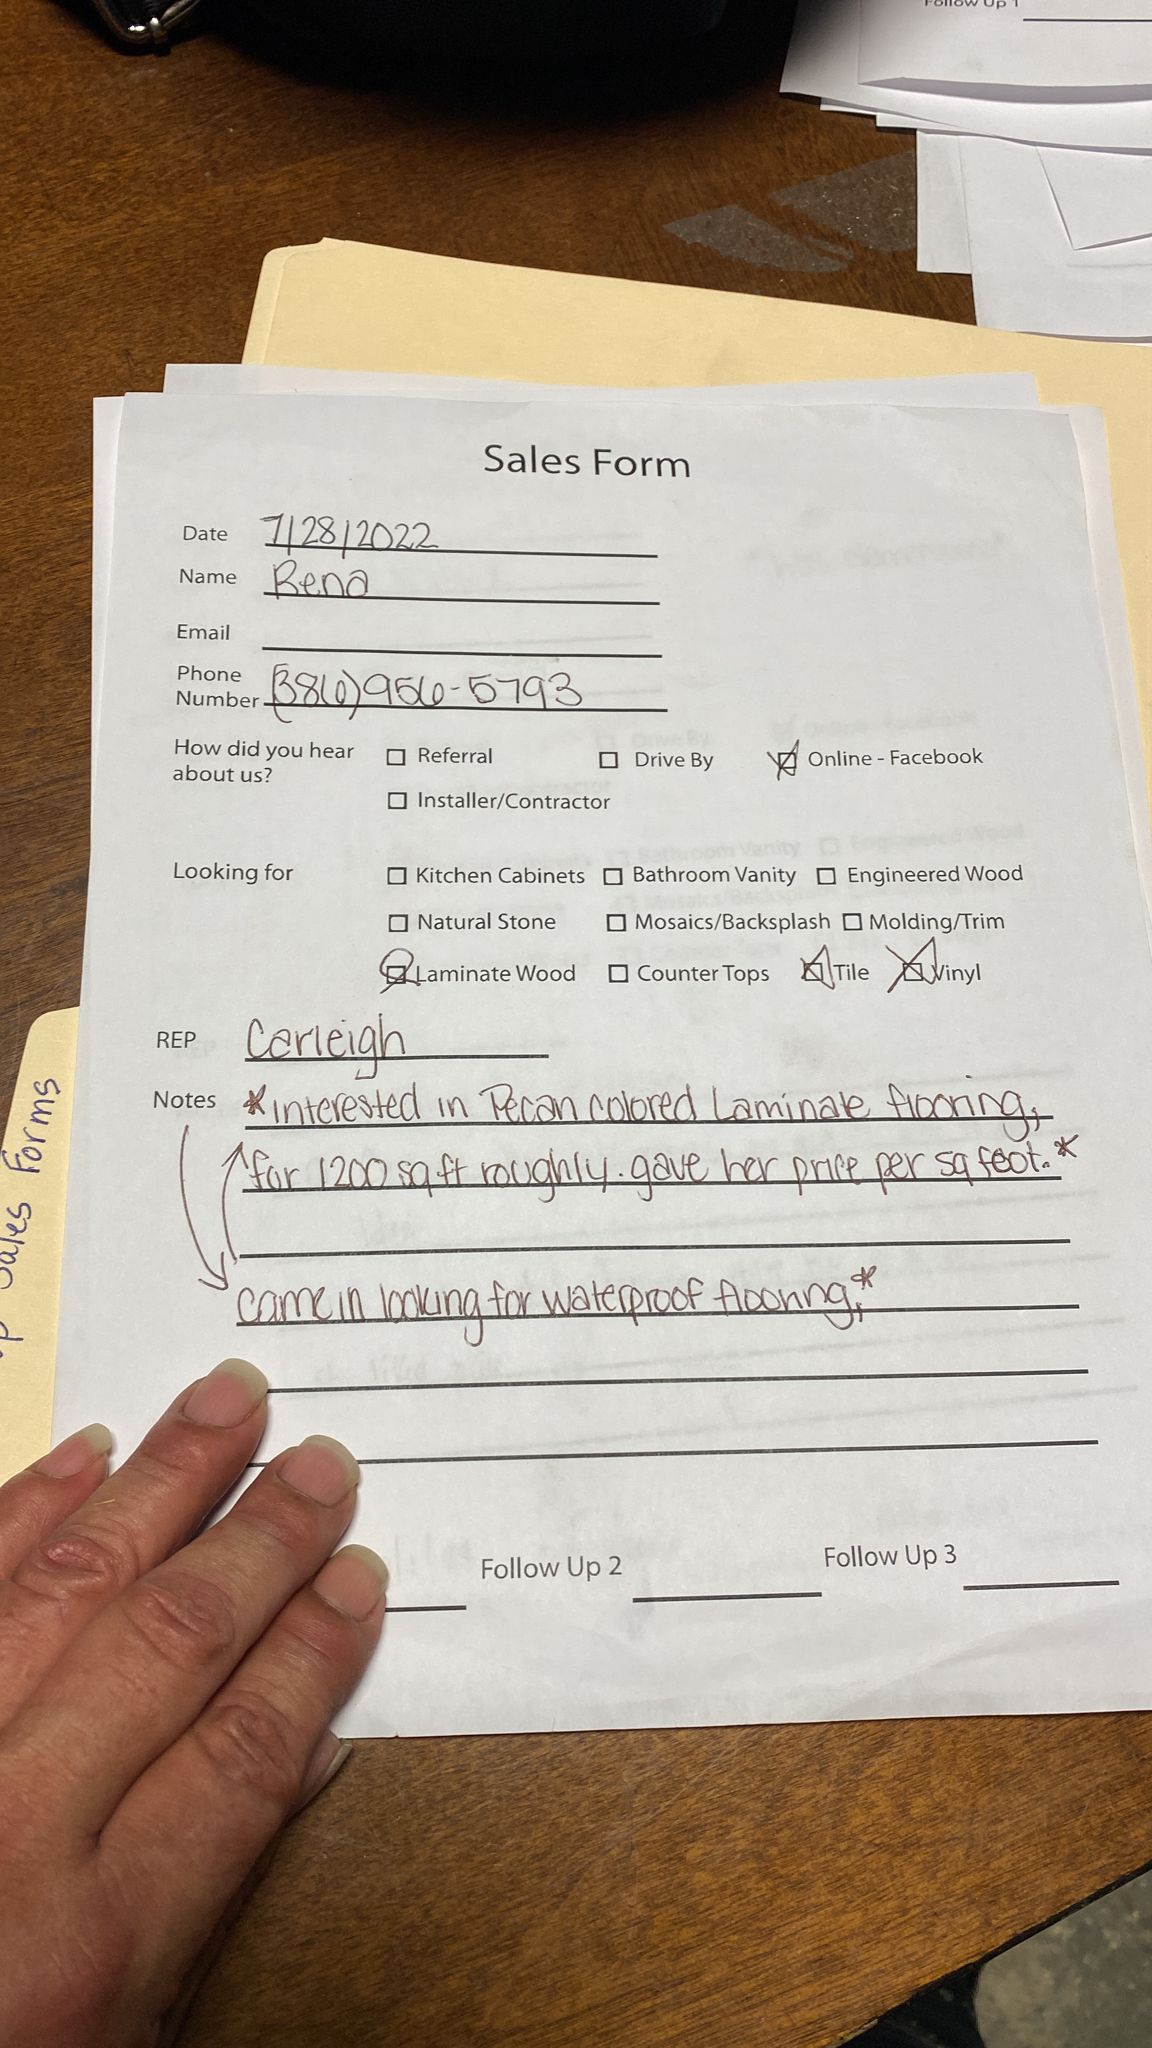 Follow Up 1
Sales Form
Date 7/28/2022
Name Rena
Email
Phone
Number (386)956-5793
How did you hear
about us?
☐ Referral ☐ Drive By ☒ Online - Facebook
☐ Installer/Contractor
Looking for ☐ Kitchen Cabinets ☐ Bathroom Vanity ☐ Engineered Wood
☐ Natural Stone ☐ Mosaics/Backsplash ☐ Molding/Trim
☒ Laminate Wood ☐ Counter Tops ☒ Tile ☒ Vinyl
REP Carleigh
Notes *interested in Pecan colored Laminate flooring,
for 1200 sq ft roughly. gave her price per sq feet.*
came in looking for waterproof flooring,*
Follow Up 2 Follow Up 3
Sales Forms